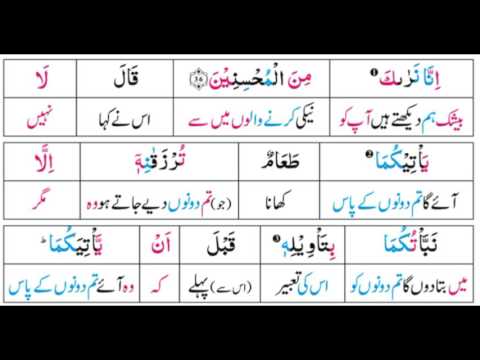 اِنَّا نَرٰىكَ ① مِنَ الْمُحْسِنِيْنَ ﴿36﴾ قَالَ لَا
بیشک ہم دیکھتے ہیں آپ کو نیکی کرنے والوں میں سے اس نے کہا نہیں
يَاْتِيْكُمَا ② طَعَامٌ تُرْزَقٰنِهٖۤ اِلَّا
آئے گا تم دونوں کے پاس کھانا (جو) تم دونوں دیے جاتے ہو وہ مگر
نَبَّاْتُكُمَا بِتَاْوِيْلِهٖ ③ قَبْلَ اَنْ يَّاْتِيَكُمَا ؕ
میں بتا دوں گا تم دونوں کو اس کی تعبیر (اس سے) پہلے کہ وہ آئے تم دونوں کے پاس